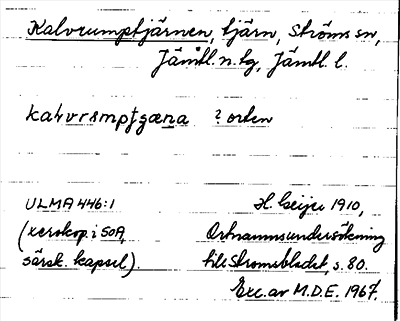 Kalvrumptjärnen, tjärn, Ströms sn,
Jämtl. n. tg, Jämtl. l.
kalvrømpʃæna ? orten
ULMA 446:1 H. Geijer 1910,
(xerokop. i SOA, Ortnamnsundersökning
särsk. kapsel). till Strömsbladet, s. 80.
Exc. av M.D.E. 1967.